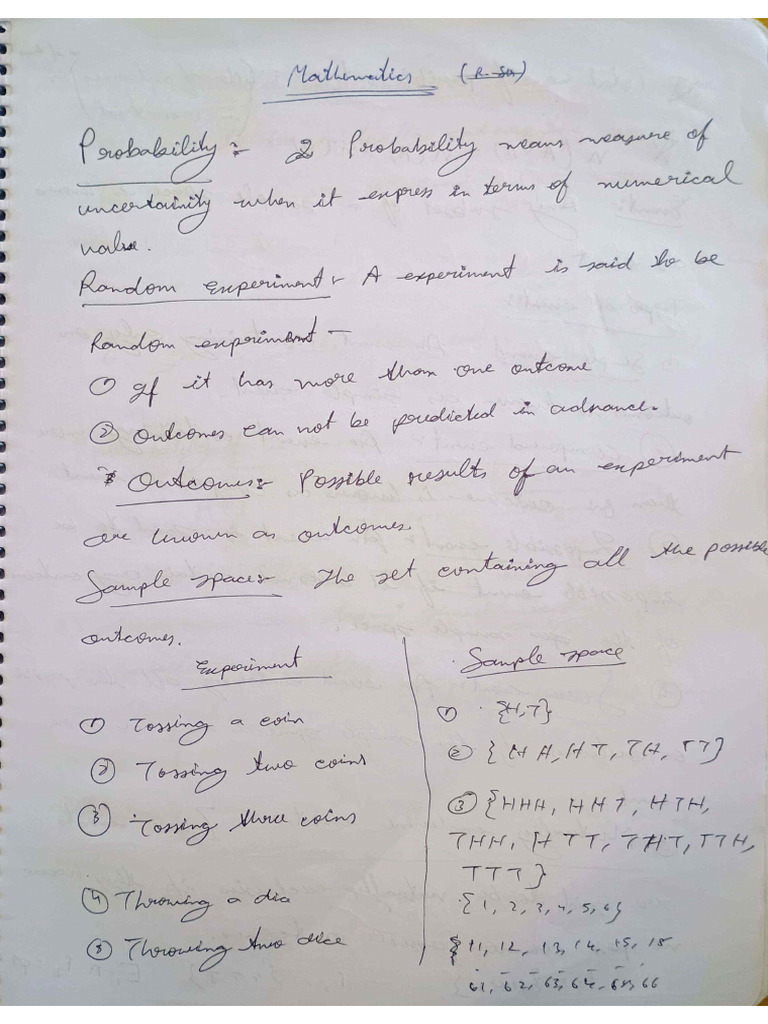 Mathematics
Probability :- Probability means measure of
uncertainity when it express in terms of numerical
value.
Random experiment :- A experiment is said to be
Random experiment -
① If it has more than one outcome
② outcomes can not be predicted in advance.
* Outcomes :- Possible results of an experiment
are known as outcomes.
Sample space :- The set containing all the possible
outcomes.
Experiment
① Tossing a coin
② Tossing two coins
③ Tossing three coins
④ Throwing a dice
⑤ Throwing two dice
Sample space
① {H,T}
② {HH, HT, TH, TT}
③ {HHH, HHT, HTH,
THH, HTT, THT, TTH,
TTT}
{1, 2, 3, 4, 5, 6}
{11, 12, 13, 14, 15,
61, 62, 63, 64, 65, 66